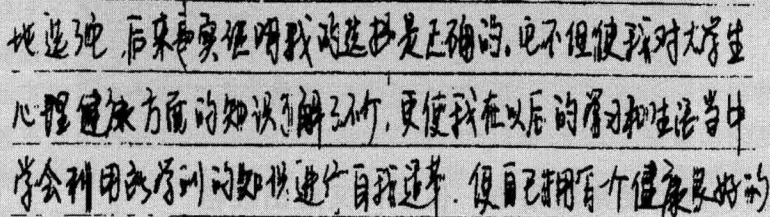 地选了它,后来事实证明我的选择是正确的。它不但使我对大学生
心理健康方面的知识了解了不少,更使我在以后的学习和生活当中
学会利用所学到的知识进行自我,使自己拥有一个健康良好的